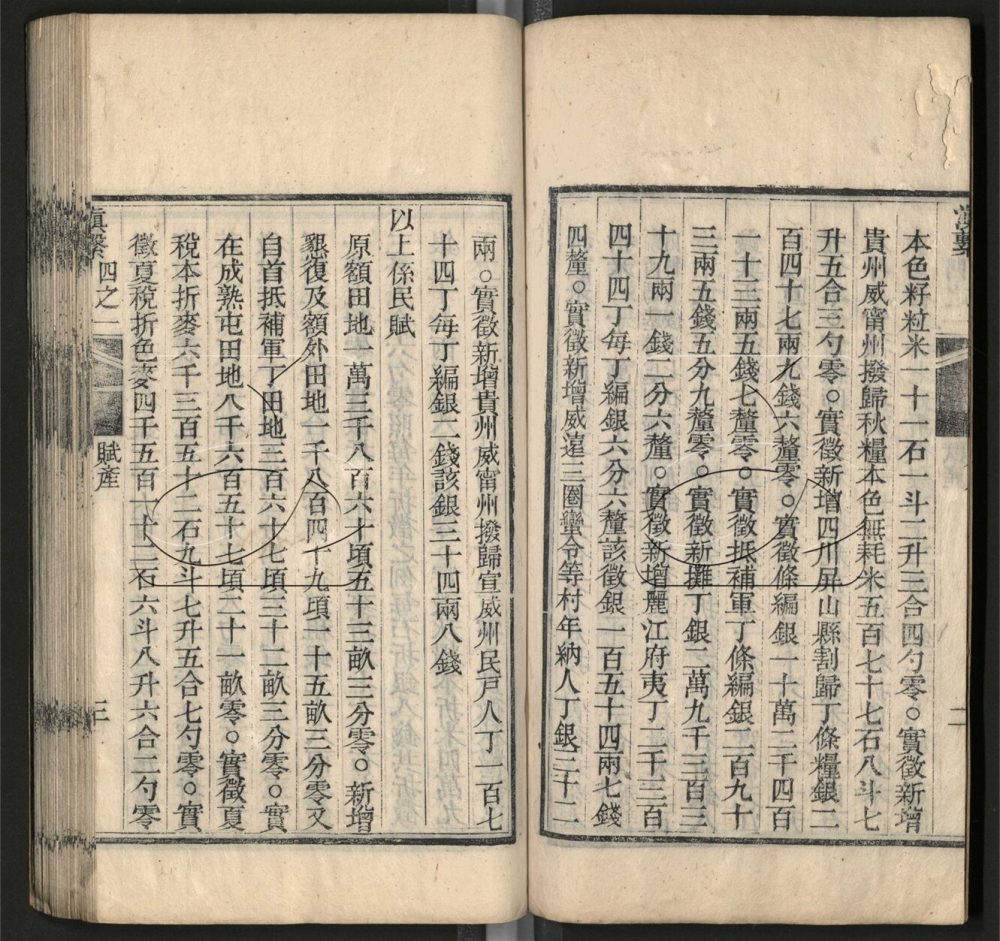 滇繫
本色籽粒米一十一石一斗二升三合四勺零○實徵新增
貴州威甯州撥歸秋糧本色無耗米五百七十七石八斗七
升五合三勺零○實徵新增四川屏山縣割歸丁條糧銀二
百四十七兩九錢六釐零○實徵條編銀一十萬二千四百
一十三兩五錢七釐零○實徵抵補軍丁條編銀二百九十
三兩五錢五分九釐零○實徵新攤丁銀二萬九千三百三
十九兩一錢二分六釐○實徵新增麗江府夷丁二千三百
四十四丁每丁編銀六分六釐該徵銀一百五十四兩七錢
四釐○實徵新增威遠三圈蠻令等村年納人丁銀三十二
兩○實徵新增貴州威甯州撥歸宣威州民戸人丁一百七
十四丁每丁編銀二錢該銀三十四兩八錢
以上係民賦
原額田地一萬三千八百六十頃五十三畝三分零○新增
懇復及額外田地一千八百四十九頃二十五畝三分零又
自首抵補軍丁田地三百六十七頃三十二畝三分零○實
在成熟屯田地八千六百五十七頃二十一畝零○實徵夏
稅本折麥六千三百五十二石九斗七升五合七勺零○實
徵夏稅折色麥四千五百一十二石六斗八升六合二勺零
滇繫 四之一 賦產 三